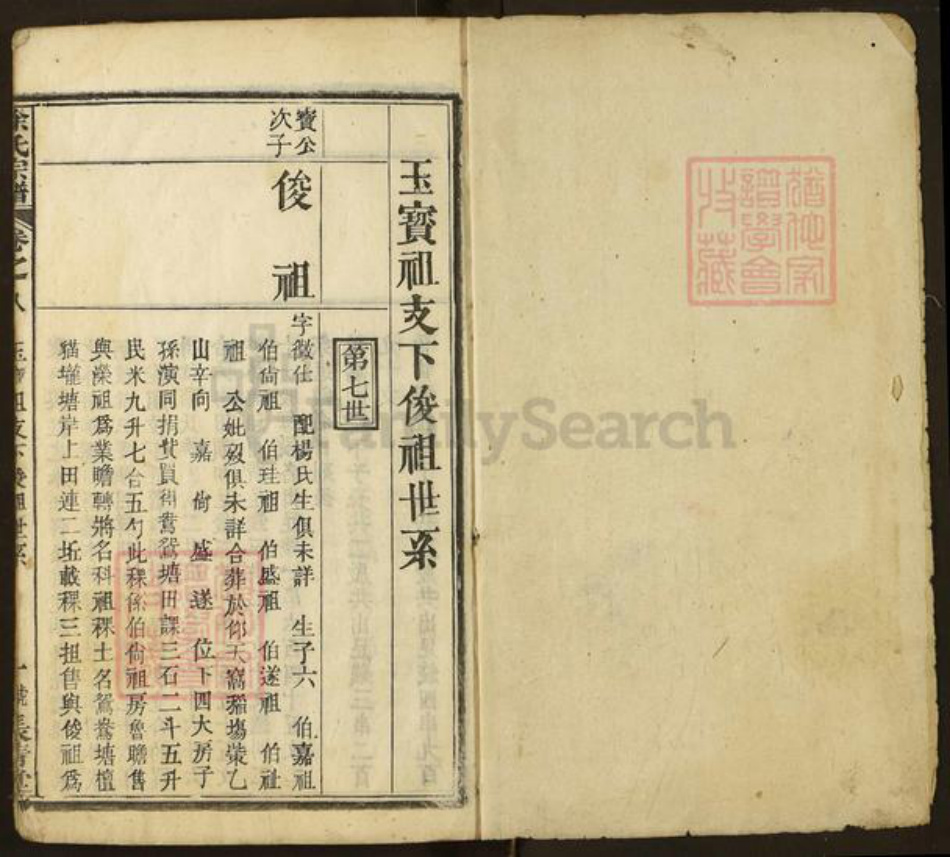 猶他家
譜學會
收藏
玉寳祖支下俊祖世系
第七世
寳公
次子
俊祖
字徵仕 配楊氏生俱未詳 生子六 伯嘉祖
伯尙祖 伯珪祖 伯盛祖 伯遂祖 伯祉
祖 公妣歿俱未詳合葬於仰天窩稲塲塋乙
山辛向 嘉 尙 盛 遂 位下四大房子
孫演同捐費買得鴛鴦塘田課三石二斗五升
民米九升七合五勺此稞係伯尙祖房魯瞻售
與榮祖爲業瞻轉將名科祖稞土名鴛鴦塘檀
猫壠塘岸上田連二坵載稞三担售與俊祖爲
余氏宗譜
卷之八
玉寳祖支下俊祖世系
FamilySearch